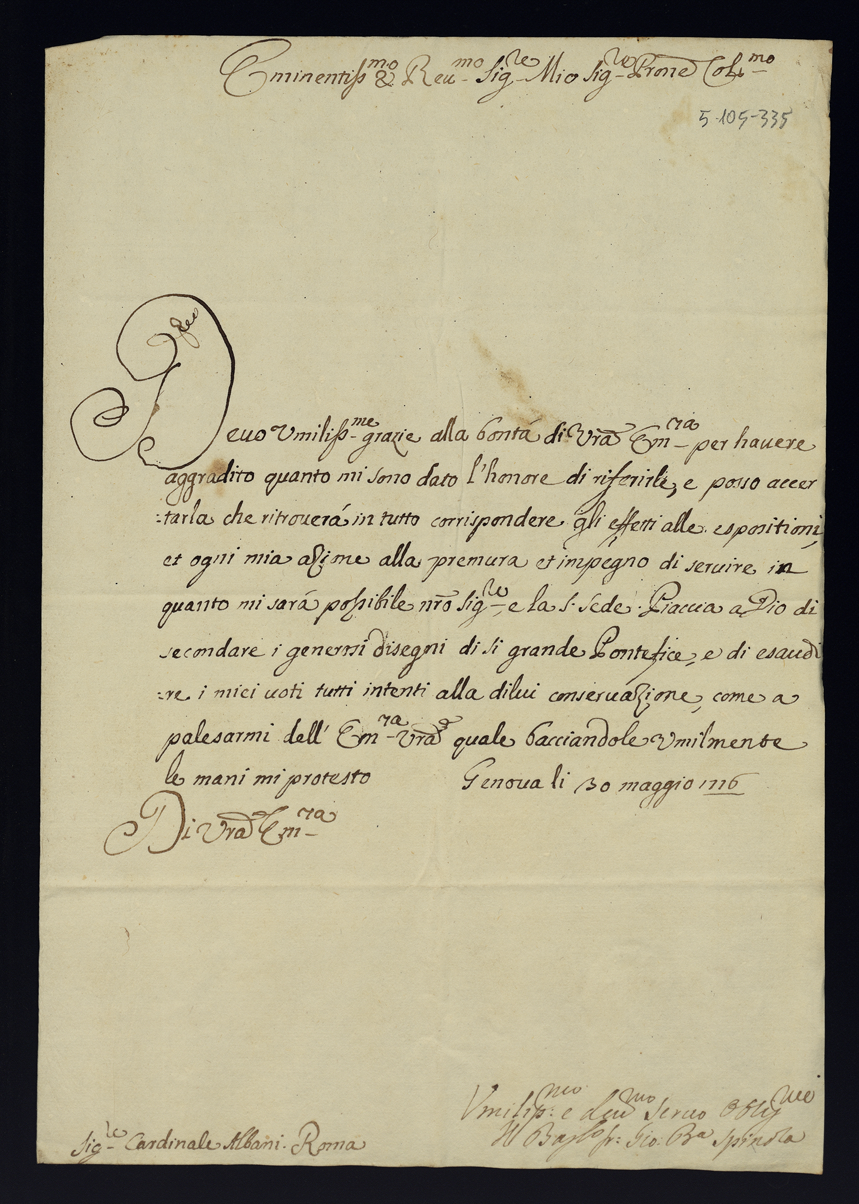 Eminentiss.mo & Reu.mo Sig.re Mio Sig.re Prone Col.mo
5-105-335
Deuo Vmiliss.me grazie alla bontá di Vra Em.za per hauere
aggradito quanto mi sono dato l'honore di riferirle, e posso accer
:tarla che ritrouerá in tutto corrispondere gli effetti alle espositioni,
et ogni mia azione alla premura et impegno di seruire in
quanto mi sará possibile nro Sig.re, e la S. Sede. Piaccia a Dio di
secondare i generosi disegni di si grande Pontefice, e di esaudi
:re i miei uoti tutti intenti alla dilui conseruazione, come a
palesarmi dell' Em.za Vra quale bacciandole Vmilmente
le mani mi protesto Genoua li 30 maggio 1716
Di Vra Em.za
Vmiliss.mo e deu.mo seruo Oblig.mo
Gio: Ba Spinola
Sig.re Cardinale Albani. Roma